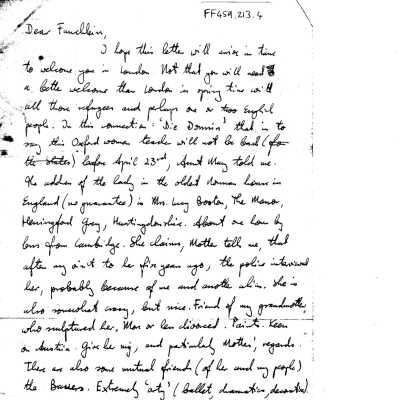 FF459.213.4
Dear Fraulein,
I hope this letter will arrive in time
to welcome you in London. Not that you will need
a better welcome than London in spring time with
all those refugees and perhaps one or two English
people. In this connection: 'Die Donnin' that is to
say this Oxford woman teacher will not be back (from
the states) before April 23rd, Aunt May told me.
The address of the lady in the oldest Norman house in
England (we guarantee) is Mrs. Lucy Boston, The Manor,
Hemingford Grey, Huntingdonshire. About one hour by
bus from Cambridge. She claims, Mother tells me, that
after my visit to her five years ago, the police interviewed
her, probably because of me and another alien. She is
also somewhat crazy, but nice. Friend of my grandmother,
who sculptured her. More or less divorced. Paints. Keen
on Austria. Give her my, and particularly Mother's, regards.
There are also some mutual friends (of her and my people)
the Extremely 'arty' (ballet, dramatics, decorative)